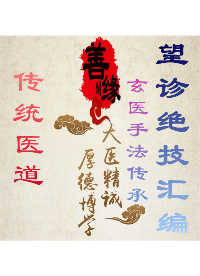 望诊绝技汇编
玄医手法传承
善缘
大医精诚
厚德博学
传统医道